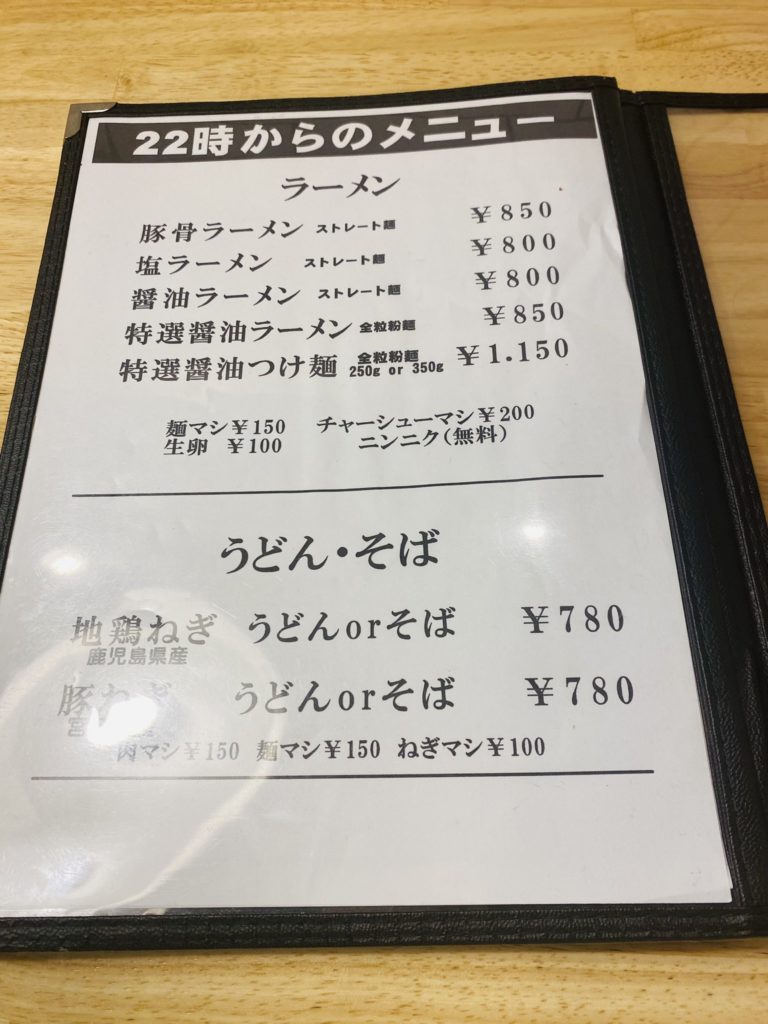 22時からのメニュー
ラーメン
豚骨ラーメン ストレート麺 ￥850
塩ラーメン ストレート麺 ￥800
醤油ラーメン ストレート麺 ￥800
特選醤油ラーメン 全粒粉麺 ￥850
特選醤油つけ麺 全粒粉麺 250g or 350g ￥1.150
麺マシ￥150 チャーシューマシ￥200
生卵 ￥100 ニンニク(無料)
うどん・そば
地鶏ねぎ うどんorそば ￥780
鹿児島県産
豚ねぎ うどんorそば ￥780
宮
肉マシ￥150 麺マシ￥150 ねぎマシ￥100